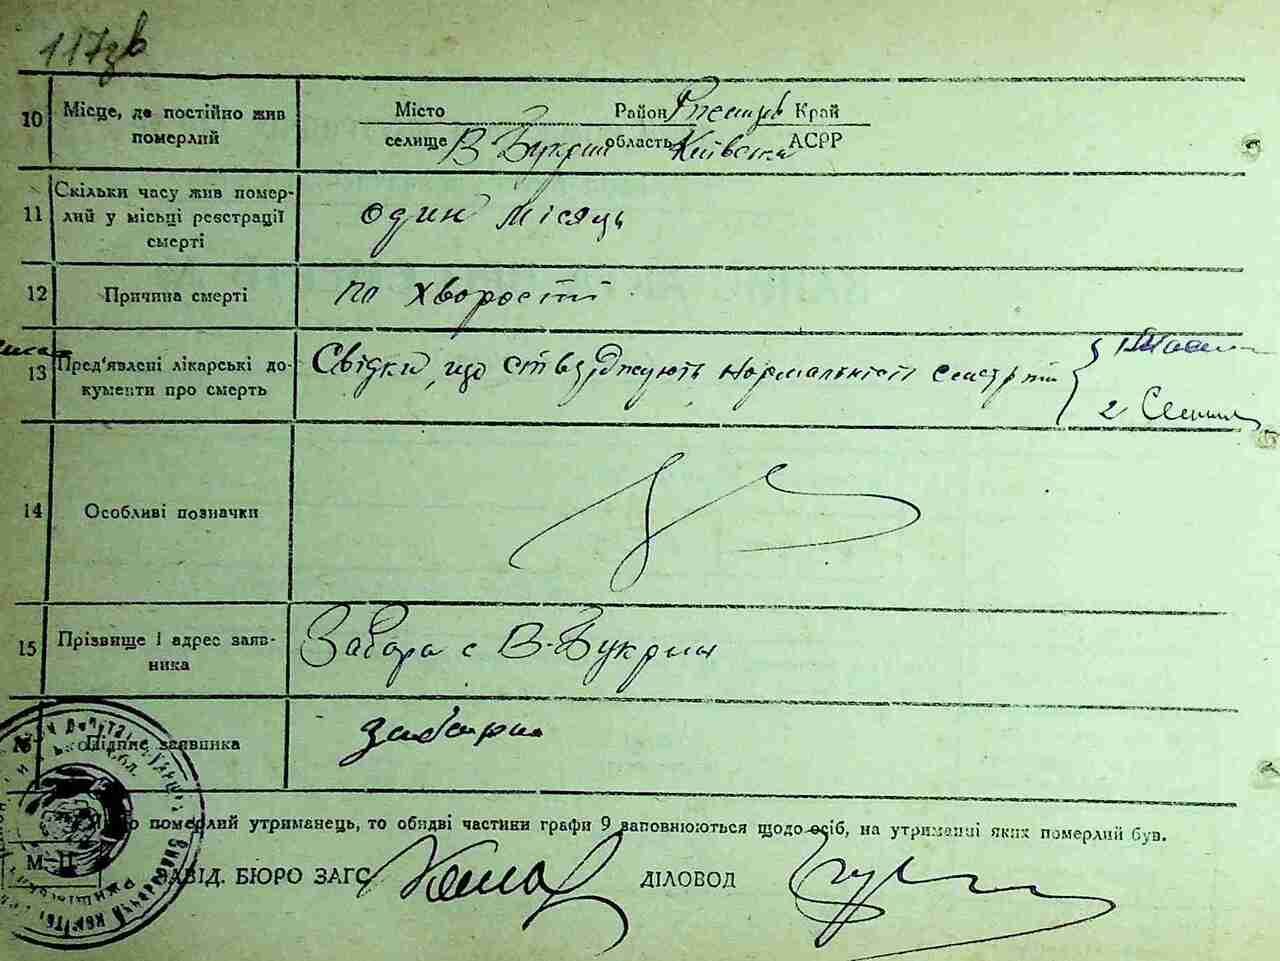 117зв
10 Місце, де постійно жив Місто Район Край
померлий селище В Букрин область Київська АСРР
Скільки часу жив помер-
11 лий у місьці реєстрації один місяць
смерті
12 Причина смерті по хворості
13 Пред'явлені лікарські до- Свідки, що стверджують нормальність смерти 1
кументи про смерть 2
14 Особливі позначки
15 Прізвище і адрес заяв- Забара с В-Букрин
ника
Підпис заявника Забара
померлий утриманець, то обидві частини графи 9 заповнюються щодо осіб, на утриманні яких померлий був.
М П
ЗАВІД. БЮРО ЗАГС ДІЛОВОД